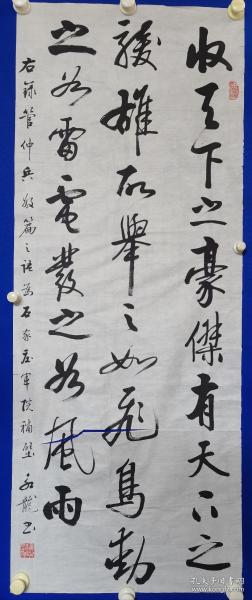 收天下之豪傑有天下之
駿雄故舉之如飛鳥動
之如雷電發之如風雨
右錄管仲兵法篇之語為石家庄軍院補壁 永龍書